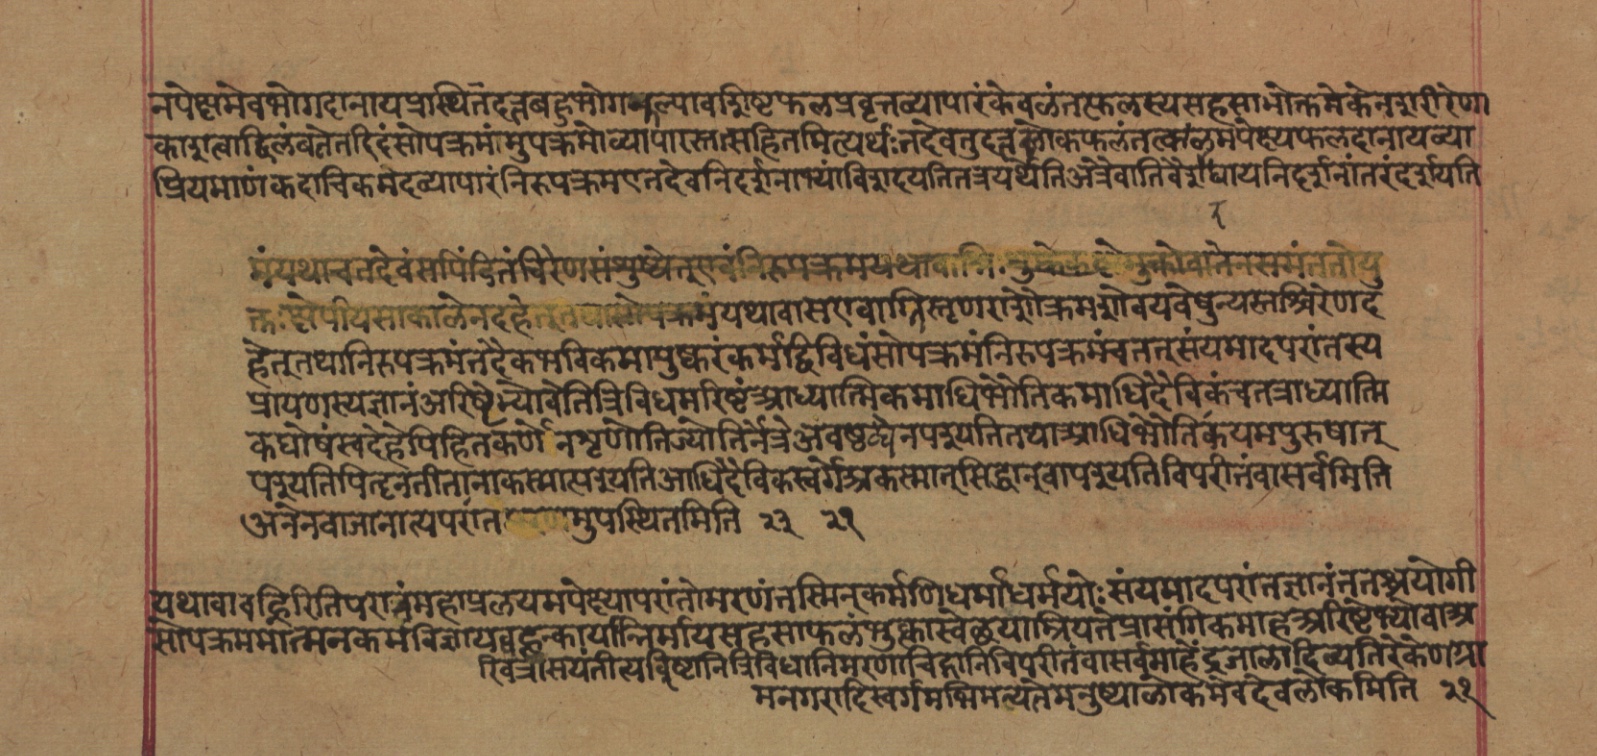 नपेक्षमेवभोगदानायप्रास्थितंदत्तबहुभोगमल्पावशिष्टफलंप्रवृत्तव्यापारंकेवलंतत्फलस्यसहसाभोक्तमेकेनशरीरेणा
काशत्वाद्विलंबतेतदिदंसोपक्रमंमुपक्रमोव्यापारस्तत्सहितमित्यर्थःतदेवतुदत्तस्तोकफलंतत्कालमपेक्ष्यफलदानायव्या
प्रियमाणंकदाचिकमंदव्यापारंनिरुपक्रमएतदेवनिदर्शनाभ्यांविशदयतितत्रयथेतिअत्रैवातिवैशद्यायनिदर्शनांतरंदर्शयति
मंयथाचतदेवंसपिंडितंचिरेणसंशुष्येत्एवंनिरुपक्रमंयथावाग्निः
यथावासएवाग्निस्तृणराशोक्रमशोवयवेषुन्यस्तश्चिरेणद
हेत्तथानिरुपक्रमंतदैकभविकमायुष्करंकर्मद्विविधंसोपक्रमंनिरुपक्रमंचतत्संयमादपरांतस्य
प्रायणस्यज्ञानंअरिष्टेभ्योवेतित्रिविधमरिष्टंआध्यात्मिकमाधिभौतिकमाधिदैविकंचतत्राध्यात्मि
कघोषंस्वदेहेपिहितकर्णोनशृणोतिज्योतिर्नेत्रेअवष्टब्धेनपश्यतितथाआधिभौतिकंयमपुरुषान्
पश्यतिपितॄनतीतानाकस्मात्पश्यतिआधिदैविकंस्वर्गंअकस्मात्सिद्धान्वापश्यतिविपरीतंवासर्वमिति
अनेनवाजानात्यपरांत मुपस्थितमिति २२ २१
यथावावह्निरितिपरांतंमहाप्रलयमपेक्ष्यापरांतोमरणंतस्मिन्कर्मणिधर्माधर्मयोःसंयमादपरांतज्ञानंततश्चयोगी
सोपक्रममात्मनकर्मविज्ञायबहून्कायान्निर्मायसहसाफलंभुक्तास्वेछयाम्रियतेप्रासंगिकमाहअरिष्टेभ्योवाअ
रिवत्त्रासयंतीत्यरिष्टानित्रिविधानिमरणचिह्नानिविपरीतंवासर्वमाहेंद्रजालादिव्यतिरेकेणग्रा
मनगरादिस्वर्गमभिमन्यतेमनुष्यालोकमेवदेवलोकमिति २१